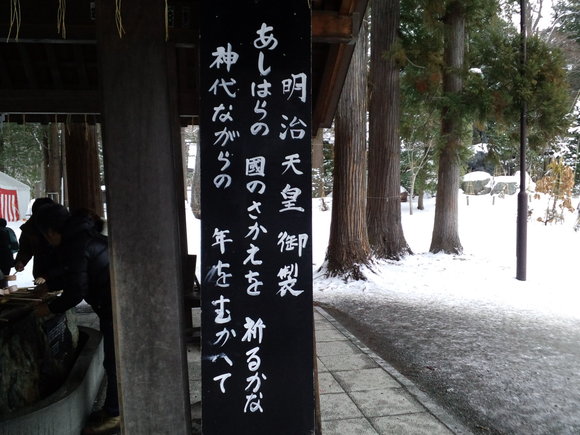 明治天皇御製
あしはらの 國のさかえを 祈るかな
神代ながらの 年をむかへて